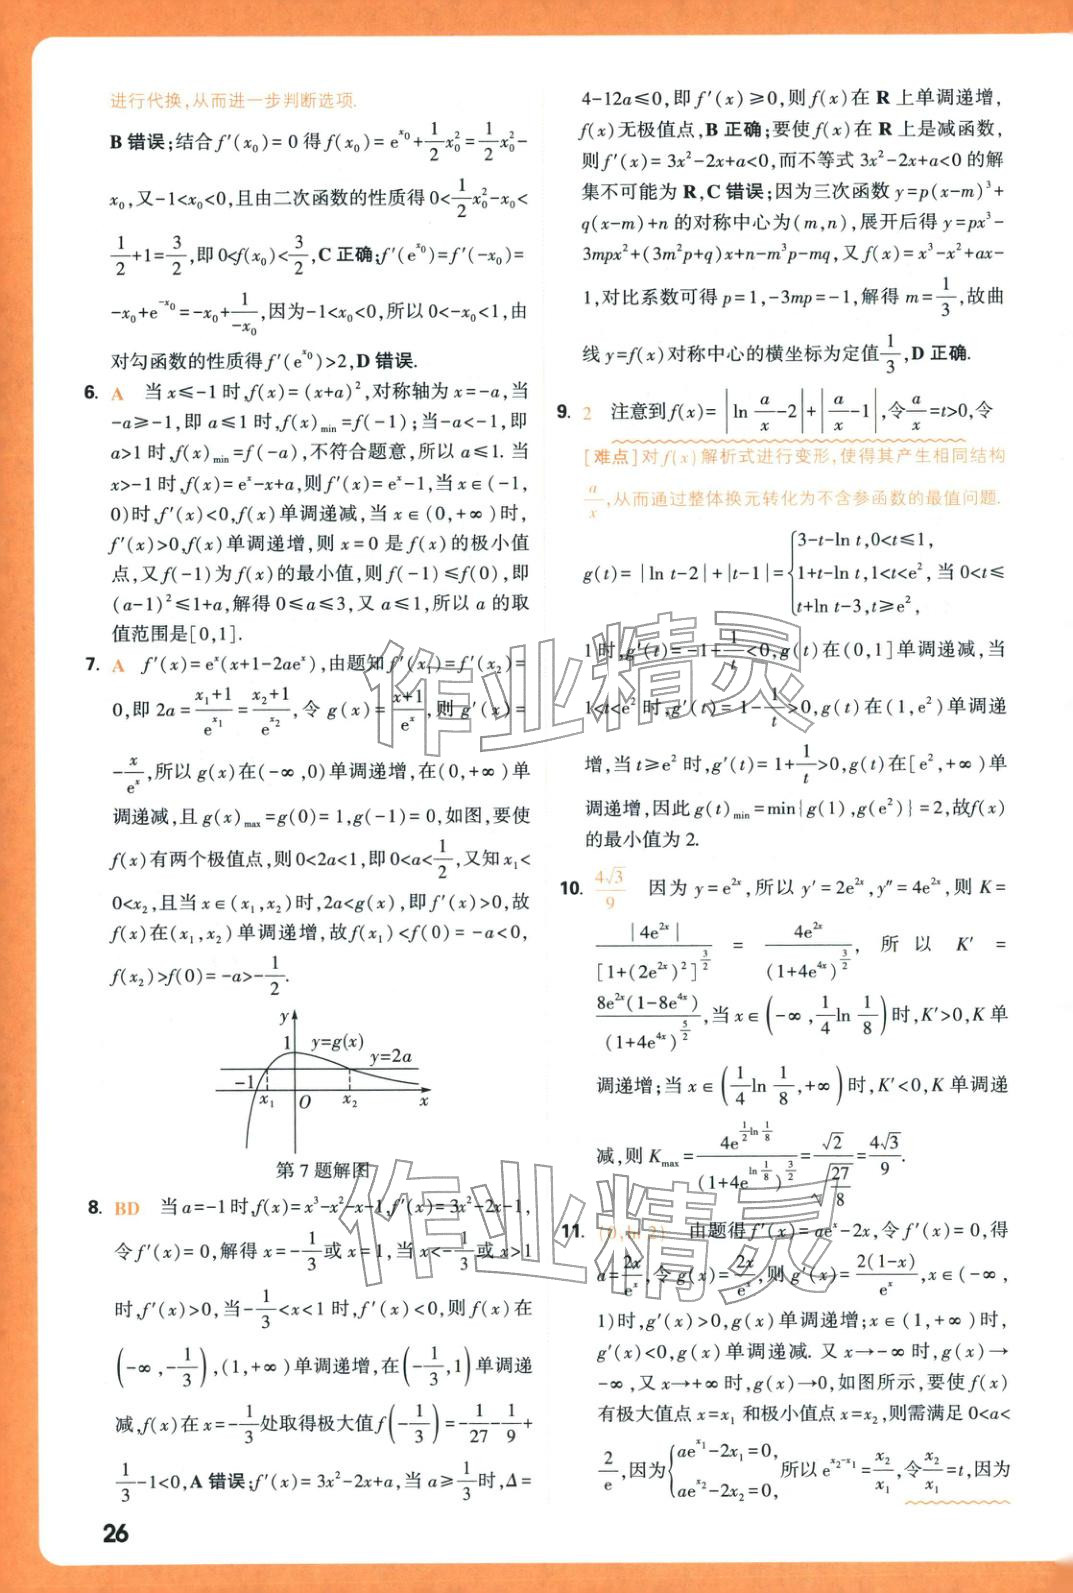 进行代换,从而进一步判断选项.
B 错误;结合 f′(x₀)=0 得 f(x₀)=e^{x₀}+\frac{1}{2}x₀²=\frac{1}{2}x₀²-
x₀,又-1<x₀<0,且由二次函数的性质得 0<\frac{1}{2}x₀²-x₀<
\frac{1}{2}+1=\frac{3}{2},即 0<f(x₀)<\frac{3}{2},C 正确;f′(e^{x₀})=f′(-x₀)=
-x₀+e^{-x₀}=-x₀+\frac{1}{-x₀},因为-1<x₀<0,所以 0<-x₀<1,由
对勾函数的性质得 f′(e^{x₀})>2,D 错误.
6. A 当 x≤-1 时,f(x)=(x+a)²,对称轴为 x=-a,当
-a≥-1,即 a≤1 时,f(x)_{min}=f(-1);当-a<-1,即
a>1 时,f(x)_{min}=f(-a),不符合题意,所以 a≤1. 当
x>-1 时,f(x)=e^x-x+a,则f′(x)=e^x-1,当 x∈(-1,
0)时,f′(x)<0,f(x)单调递减,当 x∈(0,+∞)时,
f′(x)>0,f(x)单调递增,则 x=0 是 f(x)的极小值
点,又 f(-1)为 f(x)的最小值,则 f(-1)≤f(0),即
(a-1)²≤1+a,解得 0≤a≤3,又 a≤1,所以 a 的取
值范围是[0,1].
7. A f′(x)=e^x(x+1-2ae^x),由题知 f′(x₁)=f′(x₂)=
0,即 2a=\frac{x₁+1}{e^{x₁}}=\frac{x₂+1}{e^{x₂}},令 g(x)=\frac{x+1}{e^x},则 g′(x)=
-\frac{x}{e^x},所以 g(x)在(-∞,0)单调递增,在(0,+∞)单
调递减,且 g(x)_{max}=g(0)=1,g(-1)=0,如图,要使
f(x)有两个极值点,则 0<2a<1,即 0<a<\frac{1}{2},又知 x₁<
0<x₂,且当 x∈(x₁,x₂)时,2a<g(x),即 f′(x)>0,故
f(x)在(x₁,x₂)单调递增,故f(x₁)<f(0)=-a<0,
f(x₂)>f(0)=-a>-\frac{1}{2}.
y
1 y=g(x)
y=2a
-1
x₁ O x₂ x
第 7 题解图
8. BD 当 a=-1 时,f(x)=x³-x²-x-1,f′(x)=3x²-2x-1,
令 f′(x)=0,解得 x=-\frac{1}{3}或 x=1,当 x<-\frac{1}{3}或 x>1
时,f′(x)>0,当-\frac{1}{3}<x<1 时,f′(x)<0,则 f(x)在
(-∞,-\frac{1}{3}),(1,+∞)单调递增,在(-\frac{1}{3},1)单调递
减,f(x)在 x=-\frac{1}{3}处取得极大值f(-\frac{1}{3})=-\frac{1}{27}-\frac{1}{9}+
\frac{1}{3}-1<0,A 错误;f′(x)=3x²-2x+a,当 a≥\frac{1}{3}时,Δ=
26
4-12a≤0,即 f′(x)≥0,则 f(x)在 R 上单调递增,
f(x)无极值点,B 正确;要使 f(x)在 R 上是减函数,
则f′(x)=3x²-2x+a<0,而不等式 3x²-2x+a<0 的解
集不可能为 R,C 错误;因为三次函数 y=p(x-m)³+
q(x-m)+n 的对称中心为(m,n),展开后得 y=px³-
3mpx²+(3m²p+q)x+n-m³p-mq,又 f(x)=x³-x²+ax-
1,对比系数可得 p=1,-3mp=-1,解得 m=\frac{1}{3},故曲
线 y=f(x)对称中心的横坐标为定值\frac{1}{3},D 正确.
9. 2 注意到 f(x)=|ln \frac{a}{x}-2|+|\frac{a}{x}-1|,令\frac{a}{x}=t>0,令
[难点]对 f(x)解析式进行变形,使得其产生相同结构
\frac{a}{x},从而通过整体换元转化为不含参函数的最值问题.
g(t)=|ln t-2|+|t-1|={3-t-ln t,0<t≤1, 1+t-ln t,1<t<e², t+ln t-3,t≥e²,当 0<t≤
1 时,g′(t)=-1-\frac{1}{t}<0,g(t)在(0,1]单调递减,当
1<t<e² 时,g′(t)=1-\frac{1}{t}>0,g(t)在(1,e²)单调递
增,当 t≥e² 时,g′(t)=1+\frac{1}{t}>0,g(t)在[e²,+∞)单
调递增,因此 g(t)_{min}=min{g(1),g(e²)}=2,故f(x)
的最小值为 2.
10. \frac{4√3}{9} 因为 y=e^{2x},所以 y′=2e^{2x},y″=4e^{2x},则 K=
\frac{|4e^{2x}|}{[1+(2e^{2x})²]^{\frac{3}{2}}}=\frac{4e^{2x}}{(1+4e^{4x})^{\frac{3}{2}}},所以 K′=
\frac{8e^{2x}(1-8e^{4x})}{(1+4e^{4x})^{\frac{5}{2}}},当 x∈(-∞,\frac{1}{4}ln \frac{1}{8})时,K′>0,K 单
调递增;当 x∈(\frac{1}{4}ln \frac{1}{8},+∞)时,K′<0,K 单调递
减,则 K_{max}=\frac{4e^{\frac{1}{2}ln \frac{1}{8}}}{(1+4e^{ln \frac{1}{8}})^{\frac{3}{2}}}=\frac{√2}{\sqrt{\frac{27}{8}}}=\frac{4√3}{9}.
11. (0,ln 2) 由题得 f′(x)=ae^x-2x,令 f′(x)=0,得
a=\frac{2x}{e^x},令 g(x)=\frac{2x}{e^x},则 g′(x)=\frac{2(1-x)}{e^x},x∈(-∞,
1)时,g′(x)>0,g(x)单调递增;x∈(1,+∞)时,
g′(x)<0,g(x)单调递减. 又 x→-∞时,g(x)→
-∞,又 x→+∞时,g(x)→0,如图所示,要使 f(x)
有极大值点 x=x₁ 和极小值点 x=x₂,则需满足 0<a<
\frac{2}{e},因为{ae^{x₁}-2x₁=0, ae^{x₂}-2x₂=0,所以 e^{x₂-x₁}=\frac{x₂}{x₁},令\frac{x₂}{x₁}=t,因为
作业精灵
作业精灵